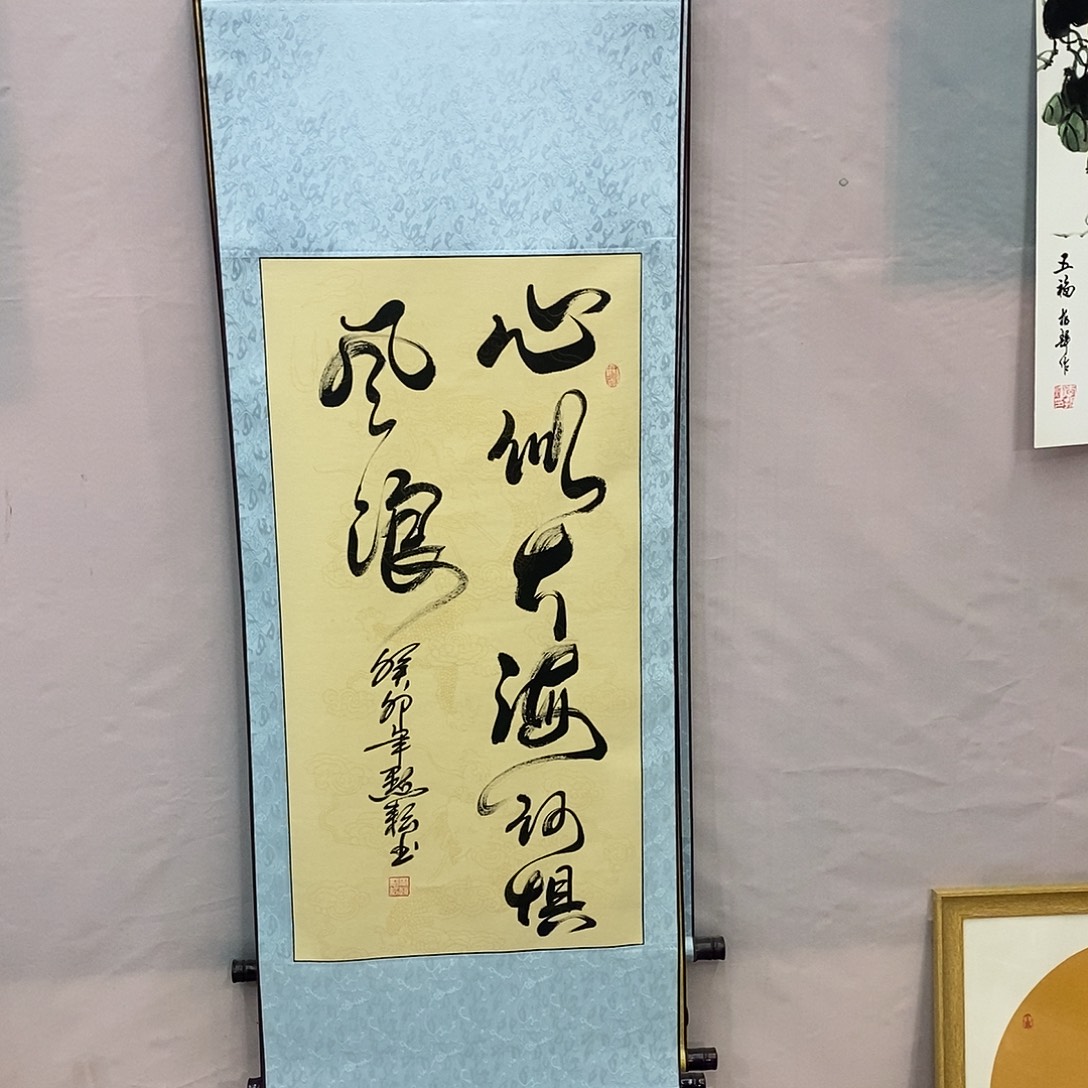 心似大海何惧
风浪
癸卯年 耘书
五福
作